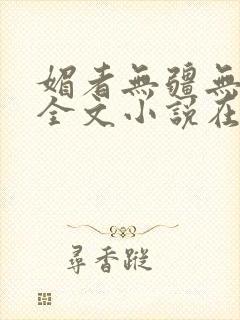 媚者無疆無
全文小說在
尋香蹤